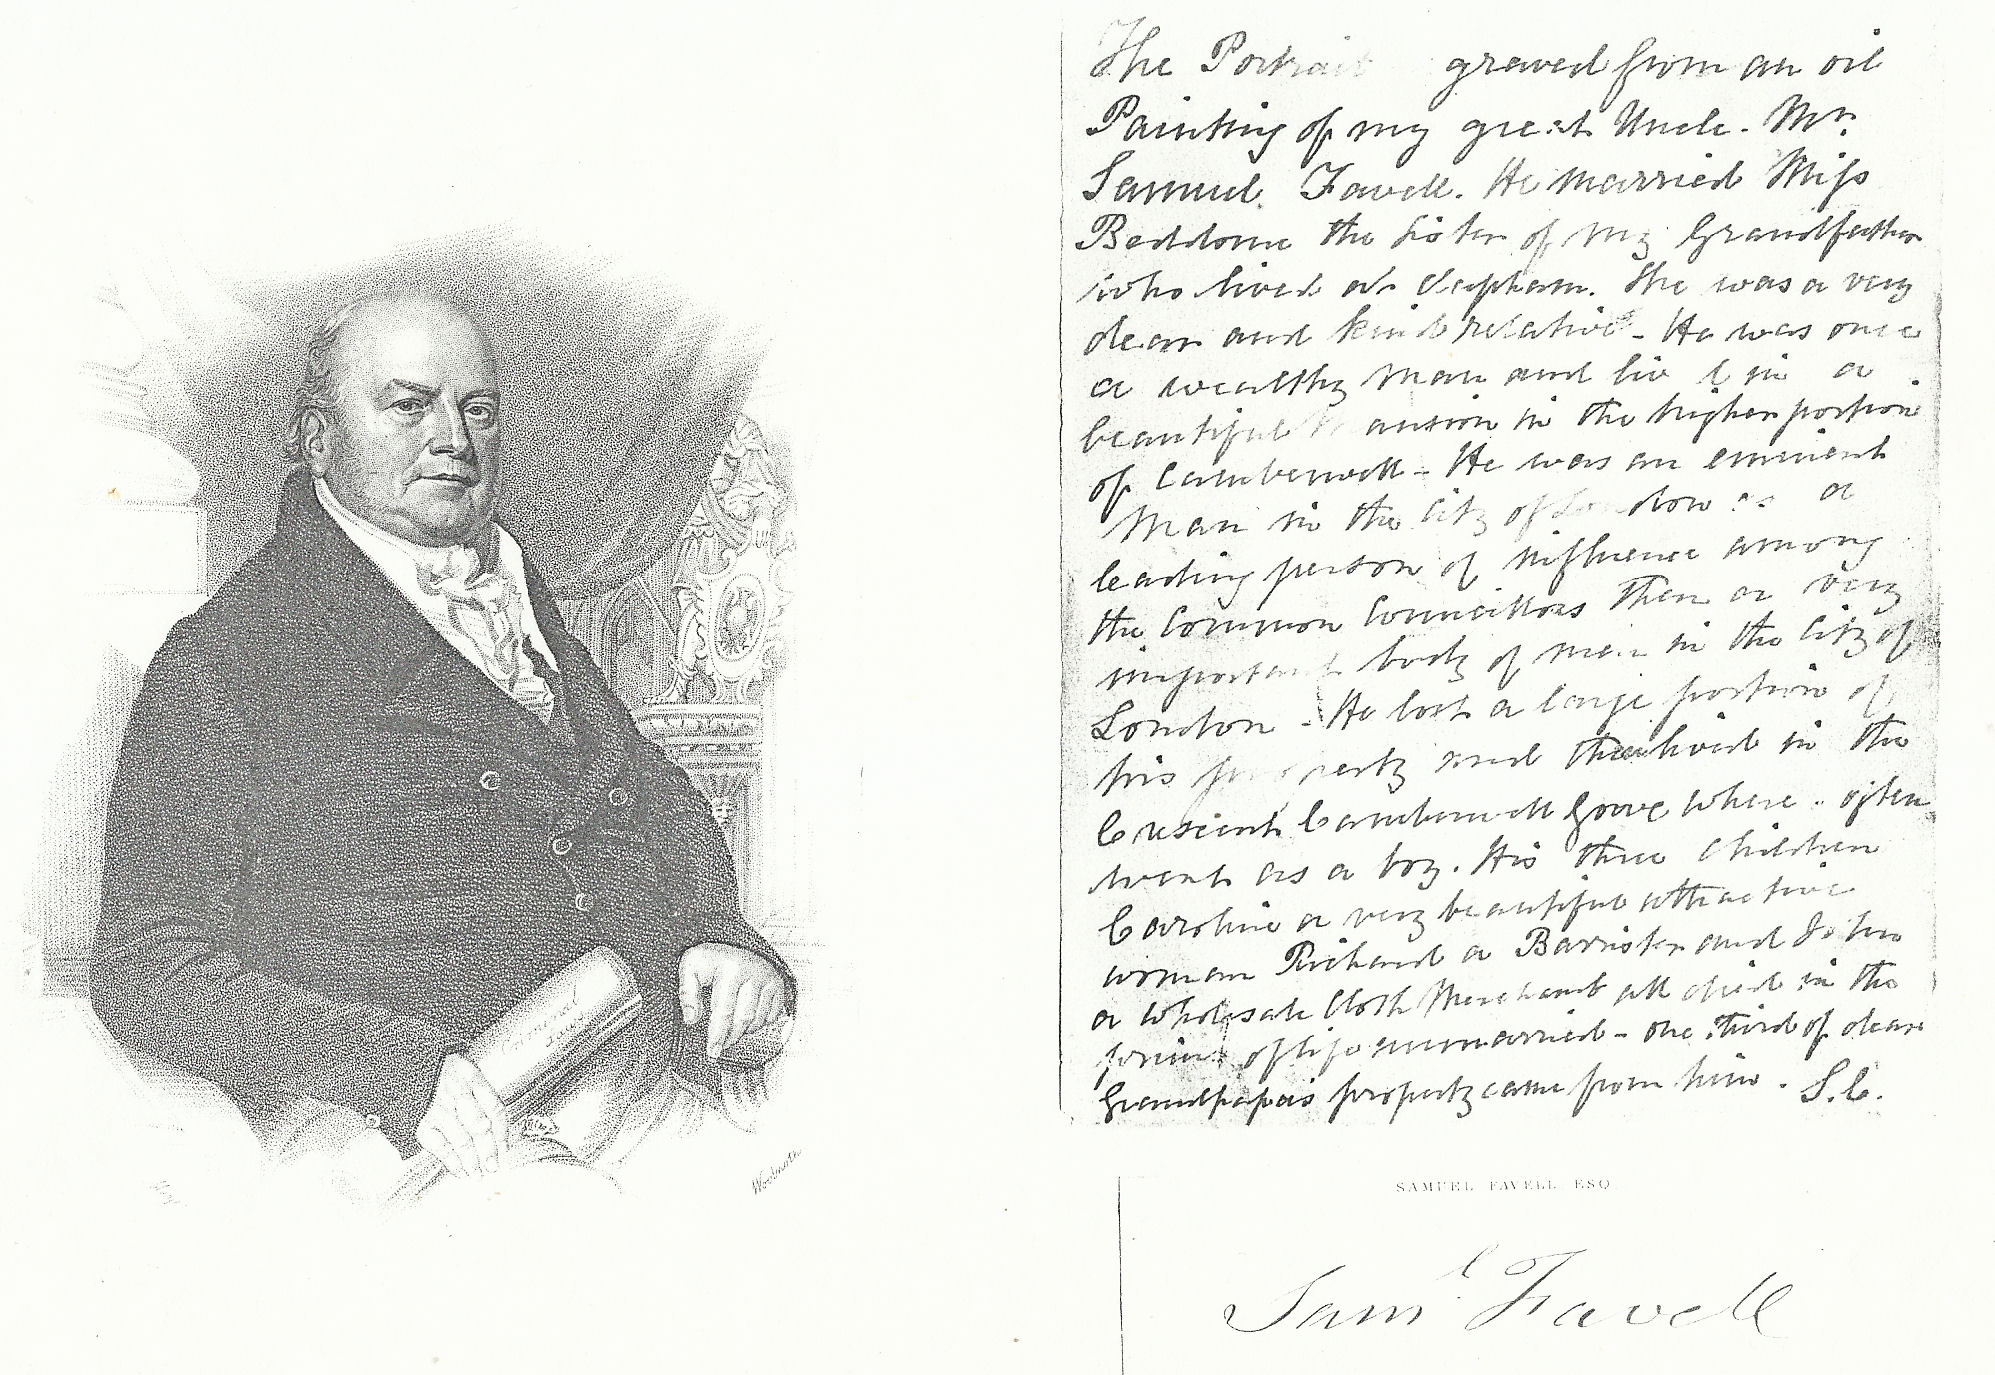 The Portrait graved from an oil
Painting of my great Uncle. Mr.
Samuel Favell. He married Miss
Beddome the sister of my Grandfather
who lived at Clapham. She was a very
dear and kind relative - He was once
a wealthy man and liv d in a
beautiful ansion in the higher portion
of Camberwell - He was an eminent
Man in the City of London as a
leading person of influence among
the Common Councillors then a very
important body of men in the City of
London - He lost a large portion of
his property and then lived in the
Crescent Camberwell Grove where often
went as a boy. His three children
Caroline a very beautiful attractive
woman Richard a Barrister and John
a wholesale Cloth Merchant all died in the
prime of life unmarried - one third of dear
Grandpapa's property came from him. S.C.
Woolnoth
SAMUEL FAVELL ESQ
Saml Favell